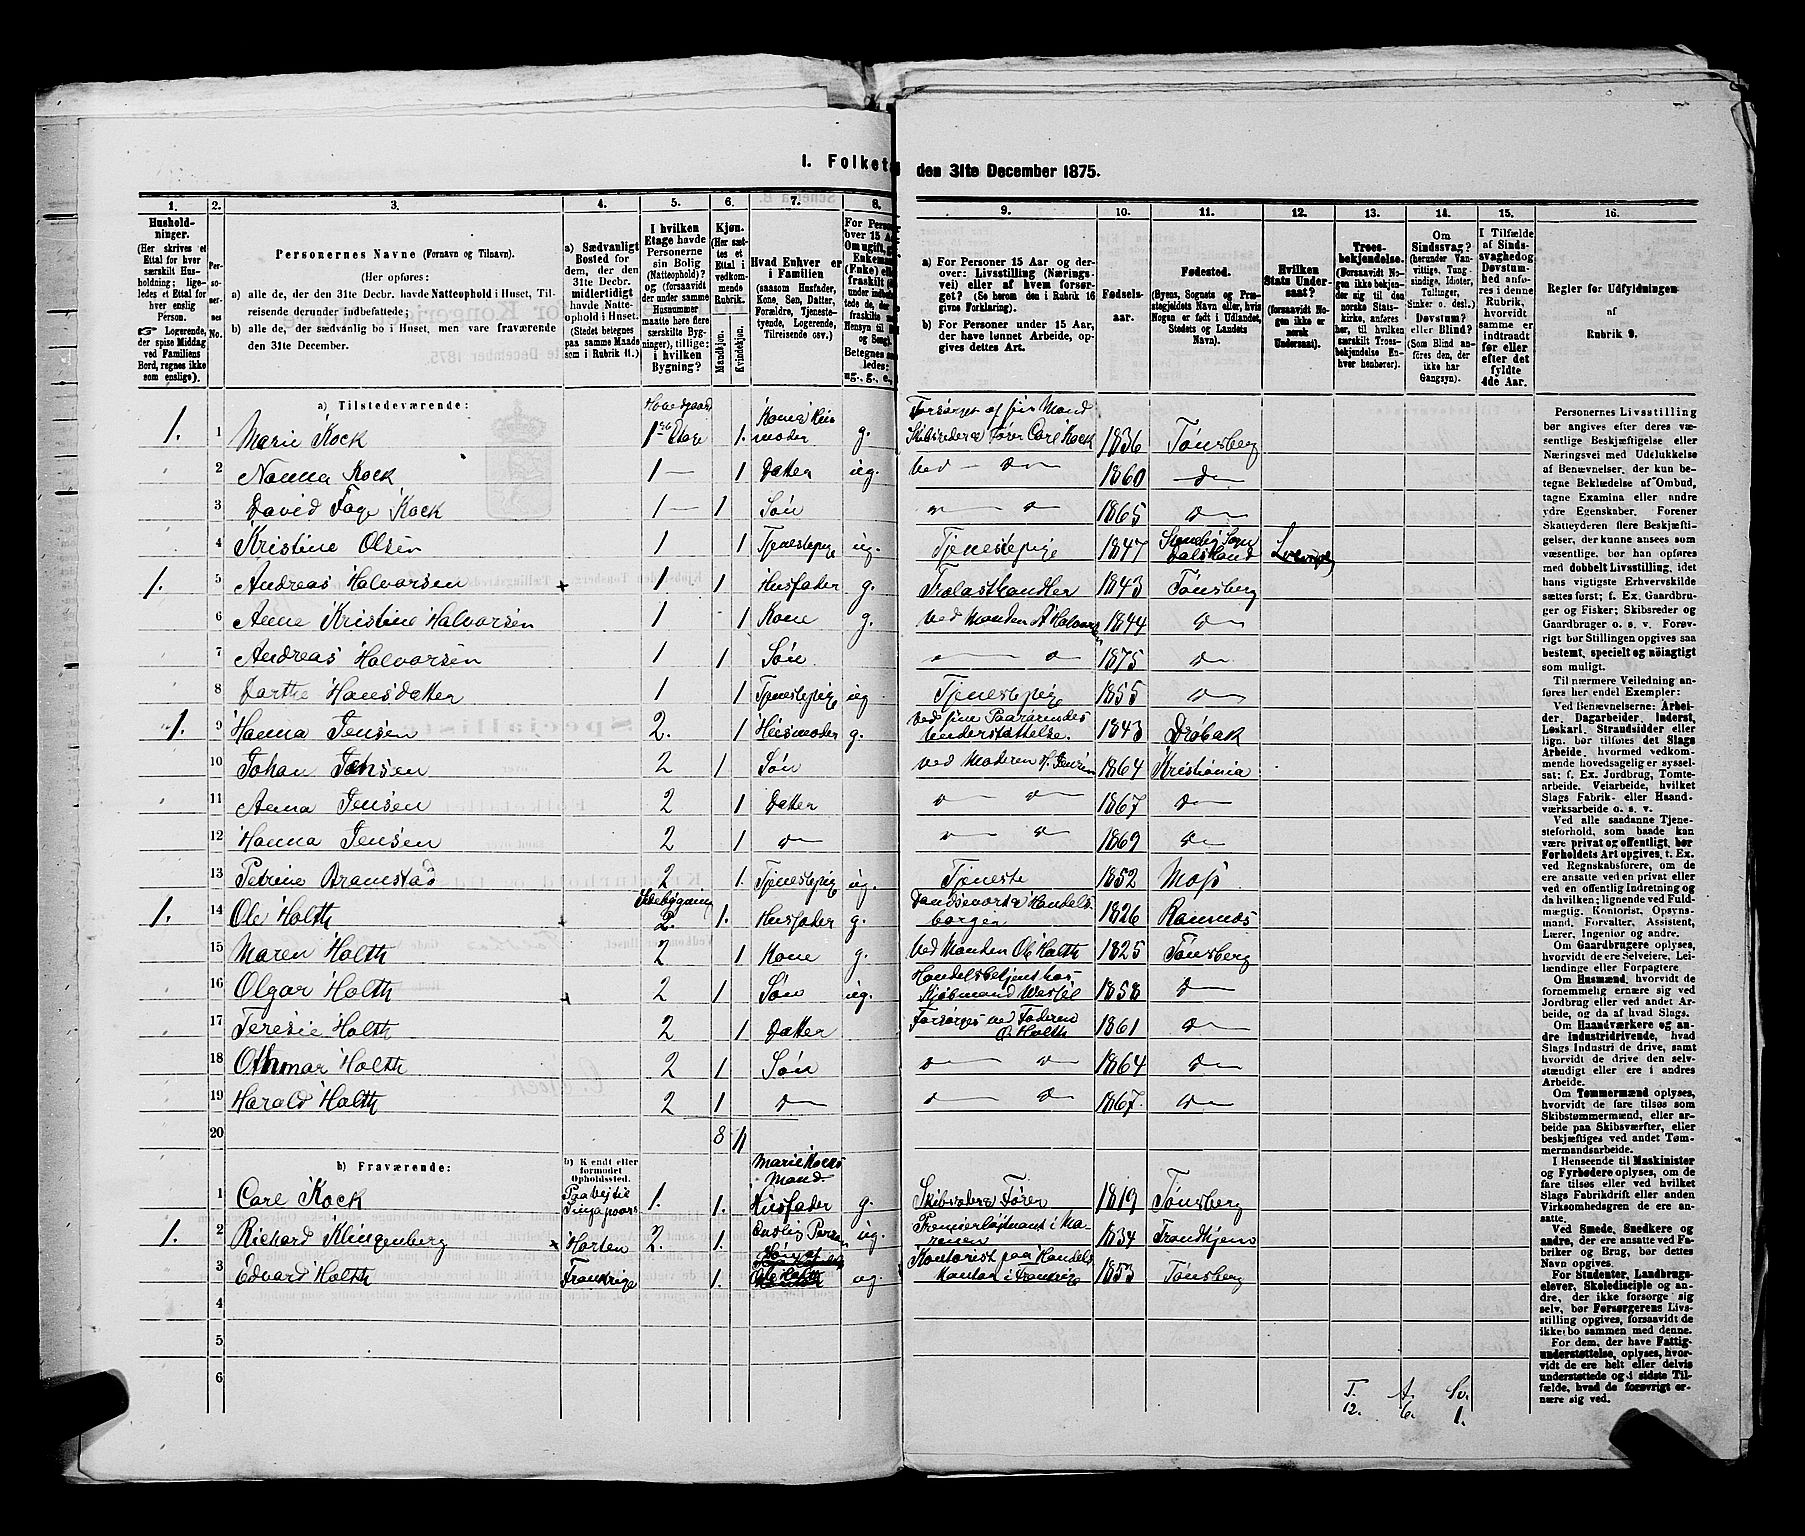 I. Folketal den 31te December 1875.
1. 2. 3. 4. 5. 6. 7. 8. 9. 10. 11. 12. 13. 14. 15. 16.
Hushold-
ninger.
(Her skrives et
Ettal for hver
særskilt Hus-
holdning; lige-
ledes et Ettal for
hver enslig
Person.
☞ Logerende,
der spise Middag
ved Familiens
Bord, regnes ikke
som enslige).
Personernes Navne (Fornavn og Tilnavn).
(Her opføres:
a) alle de, der den 31te Decbr. havde Natteophold i Huset, Til-
reisende derunder indbefattede;
b) alle de, der sædvanlig bo i Huset, men vare fraværende
den 31te December.
a) Sædvanligt
Bosted for
dem, der den
31te Decbr.
midlertidigt
havde Natte-
ophold i Huset.
(Stedet betegnes
paa samme Maade
som i Rubrik 11.)
I hvilken
Etage havde
Personerne
sin Bolig
(Natteophold)?
og (forsaavidt
der under samme
Husnummer
maatte høre flere
særskilte Byg-
ninger), tillige:
i hvilken
Bygning?
Kjøn.
(Her sæt-
tes et
Ettal i
vedkom-
mende
Rubrik.
Mandkjøn.
Kvindekjøn.
Hvad Enhver er
i Familien
(saasom Husfader,
Kone, Søn, Datter,
Forældre, Tjeneste-
tyende, Logerende,
Tilreisende osv.)
a) For Personer 15 Aar og der-
over: Livsstilling (Nærings-
vei) eller af hvem forsør-
get? (Se herom den i Rubrik 16
givne Forklaring).
b) For Personer under 15 Aar,
der have lønnet Arbeide, op-
gives dettes Art.
Fødsels-
aar.
Fødested.
(Byens, Sognets og Præ-
stegjeldets Navn eller, hvis
Nogen er født i Udlandet,
Stedets og Landets
Navn).
Hvilken
Stats Under-
saat?
(forsaavidt No-
gen ikke er
norsk
Undersaat).
Troes-
bekjendelse.
(Forsaavidt No-
gen ikke beken-
der sig til den
norske Stats-
kirke, anføres
her, til hvilken
særskilt Troes-
bekjendelse En-
hver henhører).
Om
Sindssvag?
(herunder Van-
vittige, Tung-
sindige, Idioter,
Tullinger,
Sinker o. desl.).
Døvstum?
eller Blind?
(Som Blind an-
føres den, der
ikke har
Gangsyn).
I Tilfælde
af Sinds-
svaghed og
Døvstum-
hed anfø-
res i denne
Rubrik,
hvorvidt
samme er
indtraadt
før eller
efter det
fyldte
4de Aar.
Regler for Udfyldningen
af
Rubrik 9.
a) Tilstedeværende:
1. 1 Marie Kock 1ste Etage 1. g. Skibsreder & Fører Carl Kock 1836 Tønsberg
2 Nanna Kock 1 — 1 Datter ug. Ved — do — 1860 — do —
3 David Faye Kock 1 — 1 Søn — do 1865 do —
4 Kristine Olsen 1 1 Tjenestepige ug. Tjenestepige 1847
1. 5 Andreas Halvorsen 1 1 Husfader g. Trælasthandler 1843 Tønsberg
6 Anne Kristine Halvorsen 1 1 Kone g. Ved Manden A Halvorsen 1844 do
7 Andreas Halvorsen 1 1 Søn — do 1875 do
8 Dorthe Hansdatter 1 1 Tjenestepige ug Tjenestepige 1855 do
1. 9 Hanna Jensen 2. 1 Husmoder g. Ved sine Paarørendes Understøttelse. 1843 Drøbak
10 Johan Jensen 2 1 Søn ved Moderen H. Jensen 1864 Kristiania
11 Anna Jensen 2 1 Datter do do 1867 do
12 Hanna Jensen 2 1 do do do 1869 do
13 Petrine Bramstad 2 1. Tjenestepige ug. Tjeneste 1852 Moss
1. 14 Ole Holth Sidebygning 2. 1. Husfader g. Handelsborger 1826 Ramnæs
15 Maren Holth 2 1 Kone g. Ved Manden Ole Holth 1825 Tønsberg
16 Olgar Holth 2 1 Søn ug. Handelsbetjent hos Kjøbmand 1858 do
17 Teresie Holth 2 1 Datter Forsørges ved Faderen O. Holth 1861 do
18 Othmar Holth 2 1 Søn do do 1864 do
19 Harald Holth 2 1 do do do 1867. do
20 8 11
b) Fraværende:
b) Kjendt eller
formodet
Opholdssted.
1 Carl Kock Paa Reise 1. 1. Marie Kocks Mand Husfader g. Skibsreder & Fører 1819 Tønsberg
1. 2 Richard Klingenberg Horten 2. 1. Enslig Person ug. Premierløjtnant i Marinen 1834 Trondhjem
3 Edvard Holth Frankrige 1. Søn af Ole Holth ug Kontorist paa Handels Kontor i Frankrige 1853 Tønsberg
4
5
6
T. A. Sv.
12. 6. 1.
Personernes Livsstilling
bør angives efter deres væ-
sentlige Beskjæftigelse eller
Næringsvei med Udelukkelse
af Benævnelser, der kun be-
tegne Beklædelse af Ombud,
tagne Examina eller andre
ydre Egenskaber. Forener
Skatteyderen flere Beskjæfti-
gelser, der kunne ansees som
væsentlige, bør han opføres
med dobbelt Livsstilling, idet
hans vigtigste Erhvervskilde
sættes først; f. Ex. Gaardbru-
ger og Fisker; Skibsreder og
Gaardbruger o. s. v. Forøv-
rigt bør Stillingen opgives saa
bestemt, specielt og nöiagtigt
som muligt.
Til nærmere Veiledning an-
føres her endel Exempler:
Ved Benævnelserne: Arbei-
der, Dagarbeider, Inderst,
Løskarl, Strandsidder eller
lign. bør tilføies det Slags
Arbeide, hvormed vedkom-
mende hovedsagelig er syssel-
sat; f. Ex. Jordbrug, Tomte-
arbeide, Veiarbeide, hvilket
Slags Fabrik- eller Haand-
værksarbeide o. s. v.
Ved alle saadanne Tjene-
steforhold, som baade kan
være privat og offentligt, bør
Forholdets Art opgives, t. Ex.
ved Regnskabsførere, om de
ere ansatte ved en privat eller
ved en offentlig Indretning og
da hvilken; lignende ved Fuld-
mægtig, Kontorist, Opsyns-
mand, Forvalter, Assistent,
Lærer, Ingeniør og andre.
Om Gaardbrugere oplyses,
hvorvidt de ere Selveiere, Lei-
lændinge eller Forpagtere.
Om Husmænd, hvorvidt de
fornemmelig ernære sig ved
Jordbrug eller ved andet Ar-
beide, og da af hvad Slags.
Om Haandværkere og an-
dre Industridrivende, hvad
Slags Industri de drive, samt
hvorvidt de drive den selv-
stændigt eller ere i andres
Arbeide.
Om Tømmermænd oplyses,
hvorvidt de fare tilsøs som
Skibstømmermænd, eller ar-
beide paa Skibsværfter, eller
beskjæftiges ved andet Tøm-
mermandsarbeide.
I Henseende til Maskinister
og Fyrbødere oplyses, om de
fare tilsøs eller ved hvilket
Slags Fabrikdrift eller anden
Virksomhedsgren de ere an-
satte.
Ved Smede, Snedkere og
andre, der ere ansatte ved Fa-
briker og Brug, bør dettes
Navn opgives.
For Studenter, Landbrugs-
elever, Skoledisciple og an-
dre, der ikke forsørge sig
selv, bør Forsørgerens Livs-
stilling opgives, forsaavidt de
ikke bo sammen med denne.
For dem, der have Fattig-
understøttelse, oplyses, hvor-
vidt de ere helt eller delvis
understøttede og i sidste Til-
fælde, hvad de forøvrigt er-
nære sig ved.